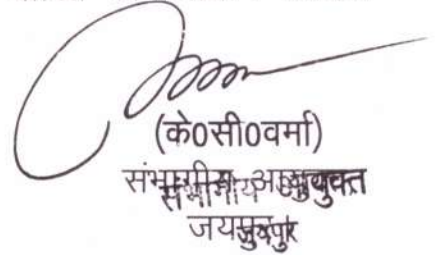 (के0सी0वर्मा)
संभागीय आयुक्त
जयपुर